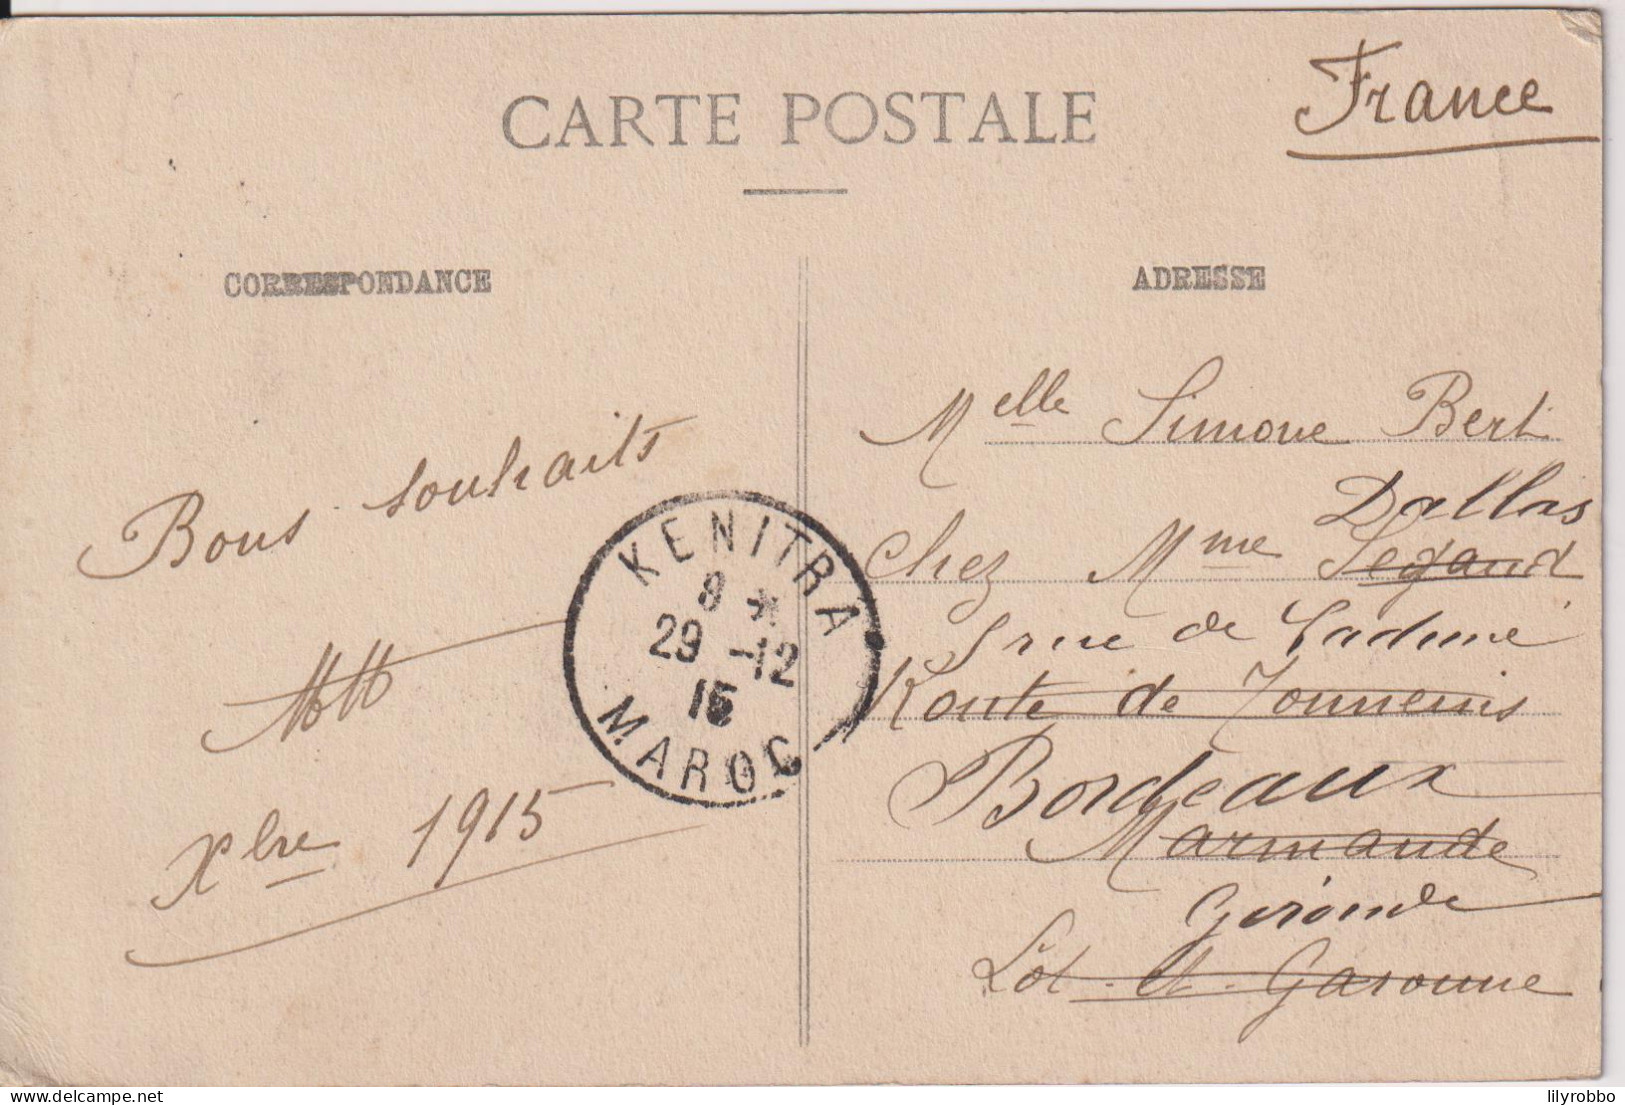 France
CARTE POSTALE
CORRESPONDANCE
ADRESSE
Bons souhaits
Xbre 1915
KENITRA
8 *
29 -12
15
MAROC
Melle Simone Bert
Dallas
Chez Mme Legaud
rue de
Route de Tonneins
Bordeaux
Marmande
Gironde
Lot-et-Garonne
lilyrobbo
delcampe.net